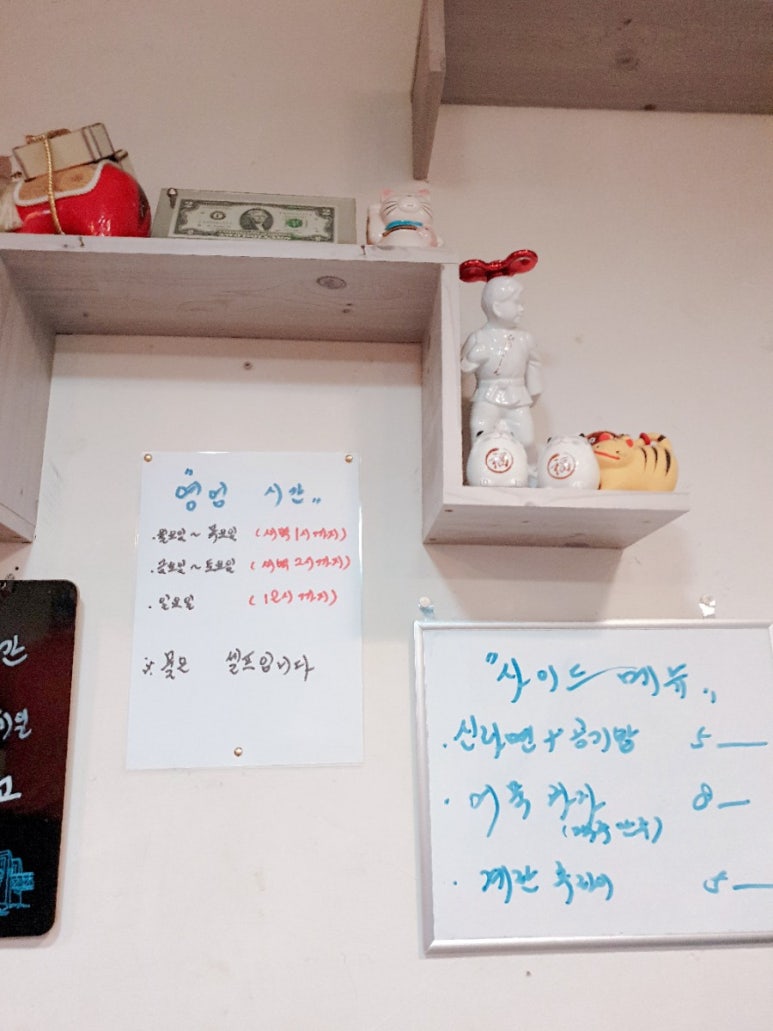 "영업 시간"
· 월요일 ~ 목요일 (새벽 1시까지)
· 금요일 ~ 토요일 (새벽 2시까지)
· 일요일 (12시까지)
※ 물은 셀프입니다
간
고
"사이드 메뉴"
· 신라면 + 공기밥 5 —
· 어묵 과자 8 —
(맥주 안주)
· 계란 후라이 5 —
2
2
福
福